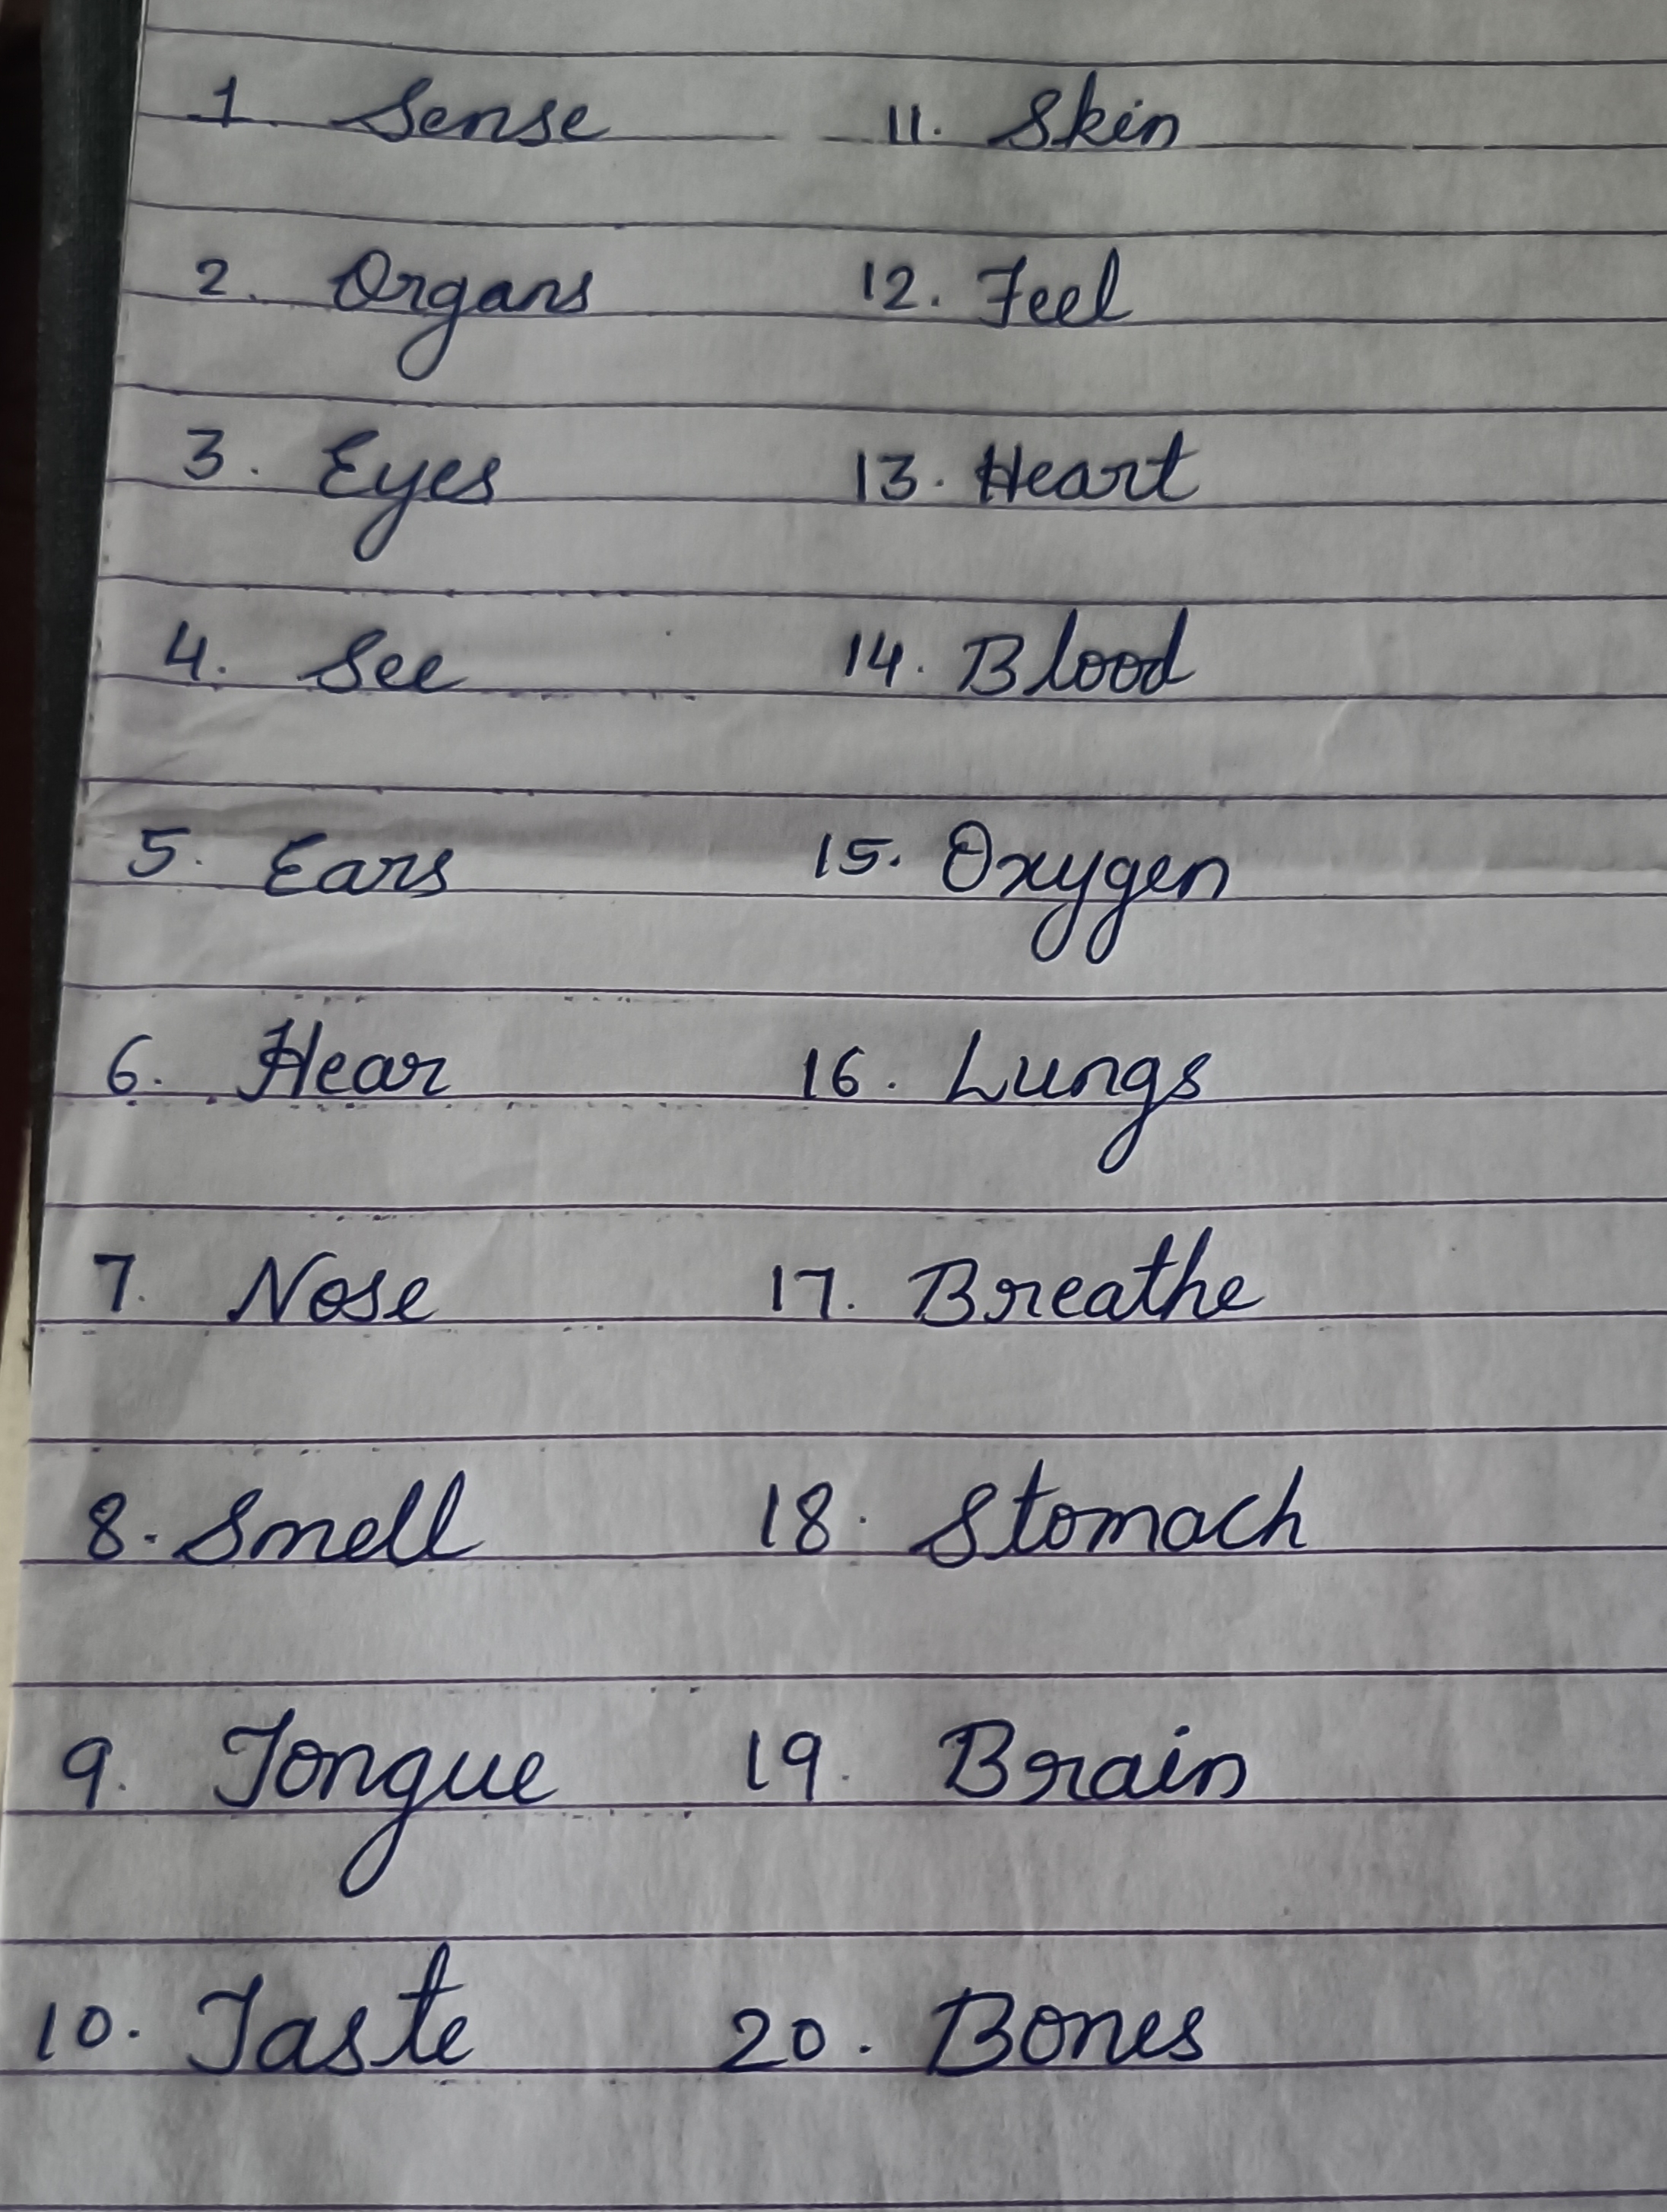 1. Sense 11. Skin
2. Organs 12. Feel
3. Eyes 13. Heart
4. See 14. Blood
5. Ears 15. Oxygen
6. Hear 16. Lungs
7. Nose 17. Breathe
8. Smell 18. Stomach
9. Tongue 19. Brain
10. Taste 20. Bones